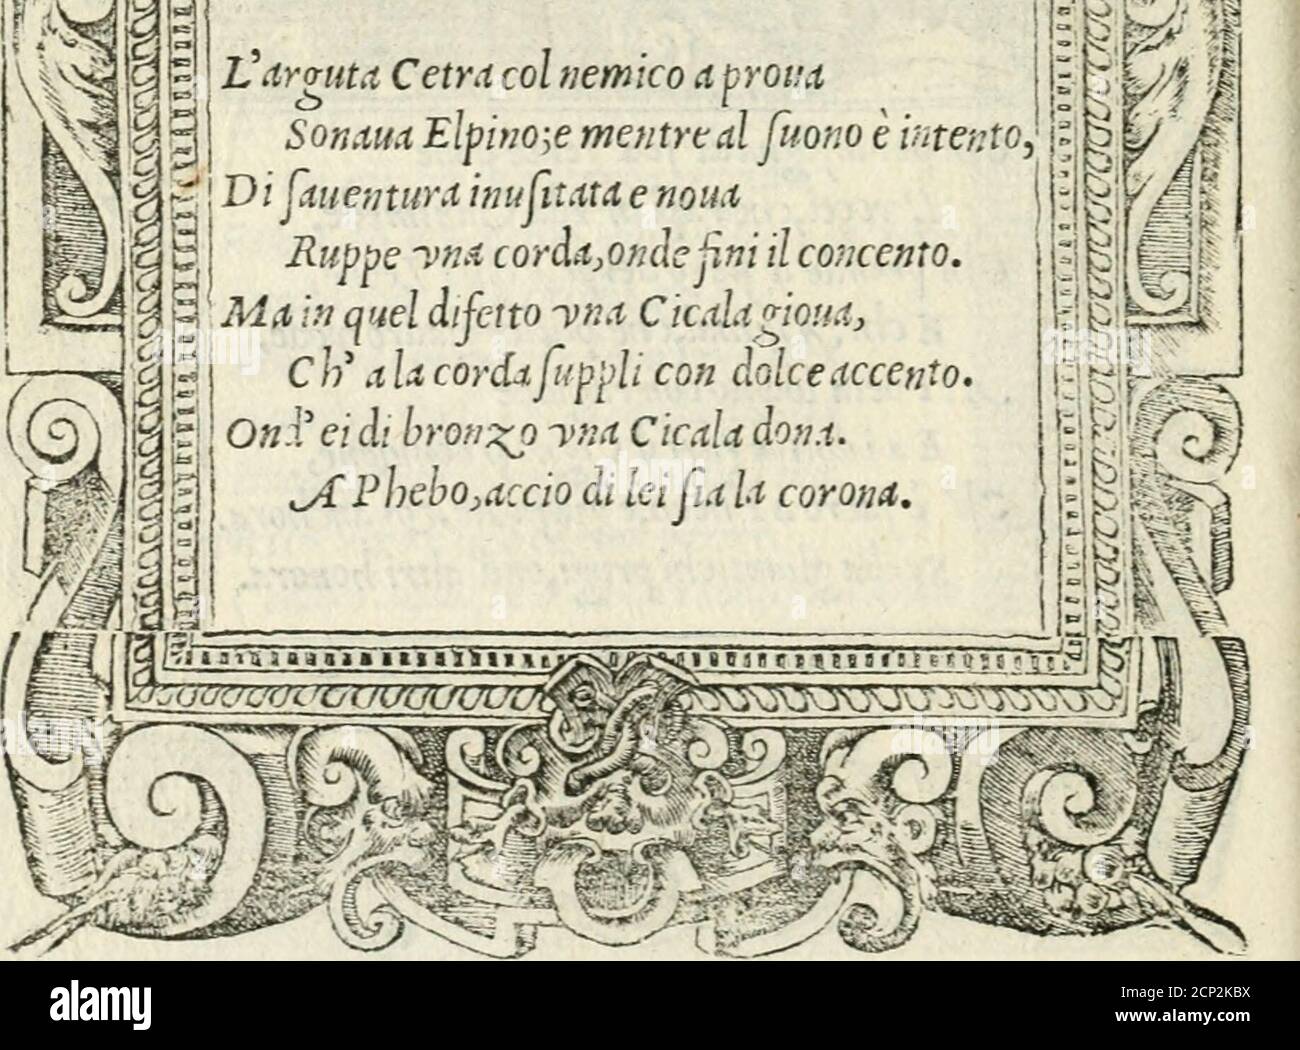 L'arguta Cetra col nemico a proua
Sonaua Elpino;e mentre al ſuono è intento,
Di ſauentura inuſitata e noua
Ruppe vna corda,onde fini il concento.
Ma in quel difetto vna Cicala gioua,
Ch' a la corda ſuppli con dolce accento.
Ond' ei di bronzo vna Cicala dona.
A Phebo,accio di lei ſia la corona.
alamy
Image ID: 2CP2KBX
www.alamy.com